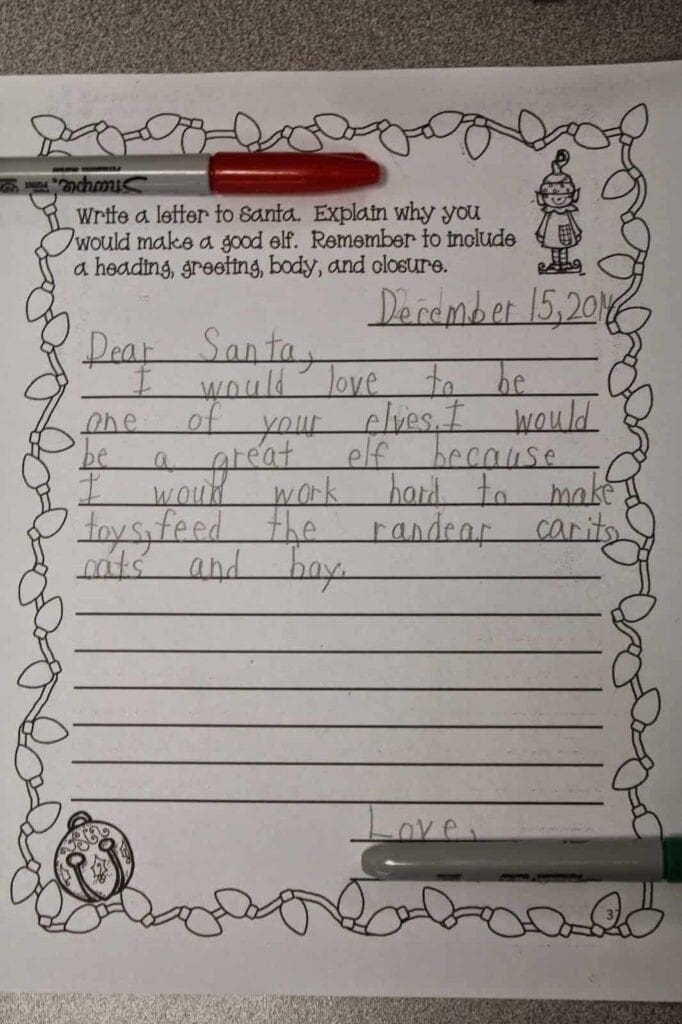 Sharpie.
Write a letter to Santa. Explain why you
would make a good elf. Remember to include
a heading, greeting, body, and closure.
December 15, 2014
Dear Santa,
I would love to be
one of your elves. I would
be a great elf because
I would work hard to make
toys, feed the randear carits,
oats and hay.
Love,